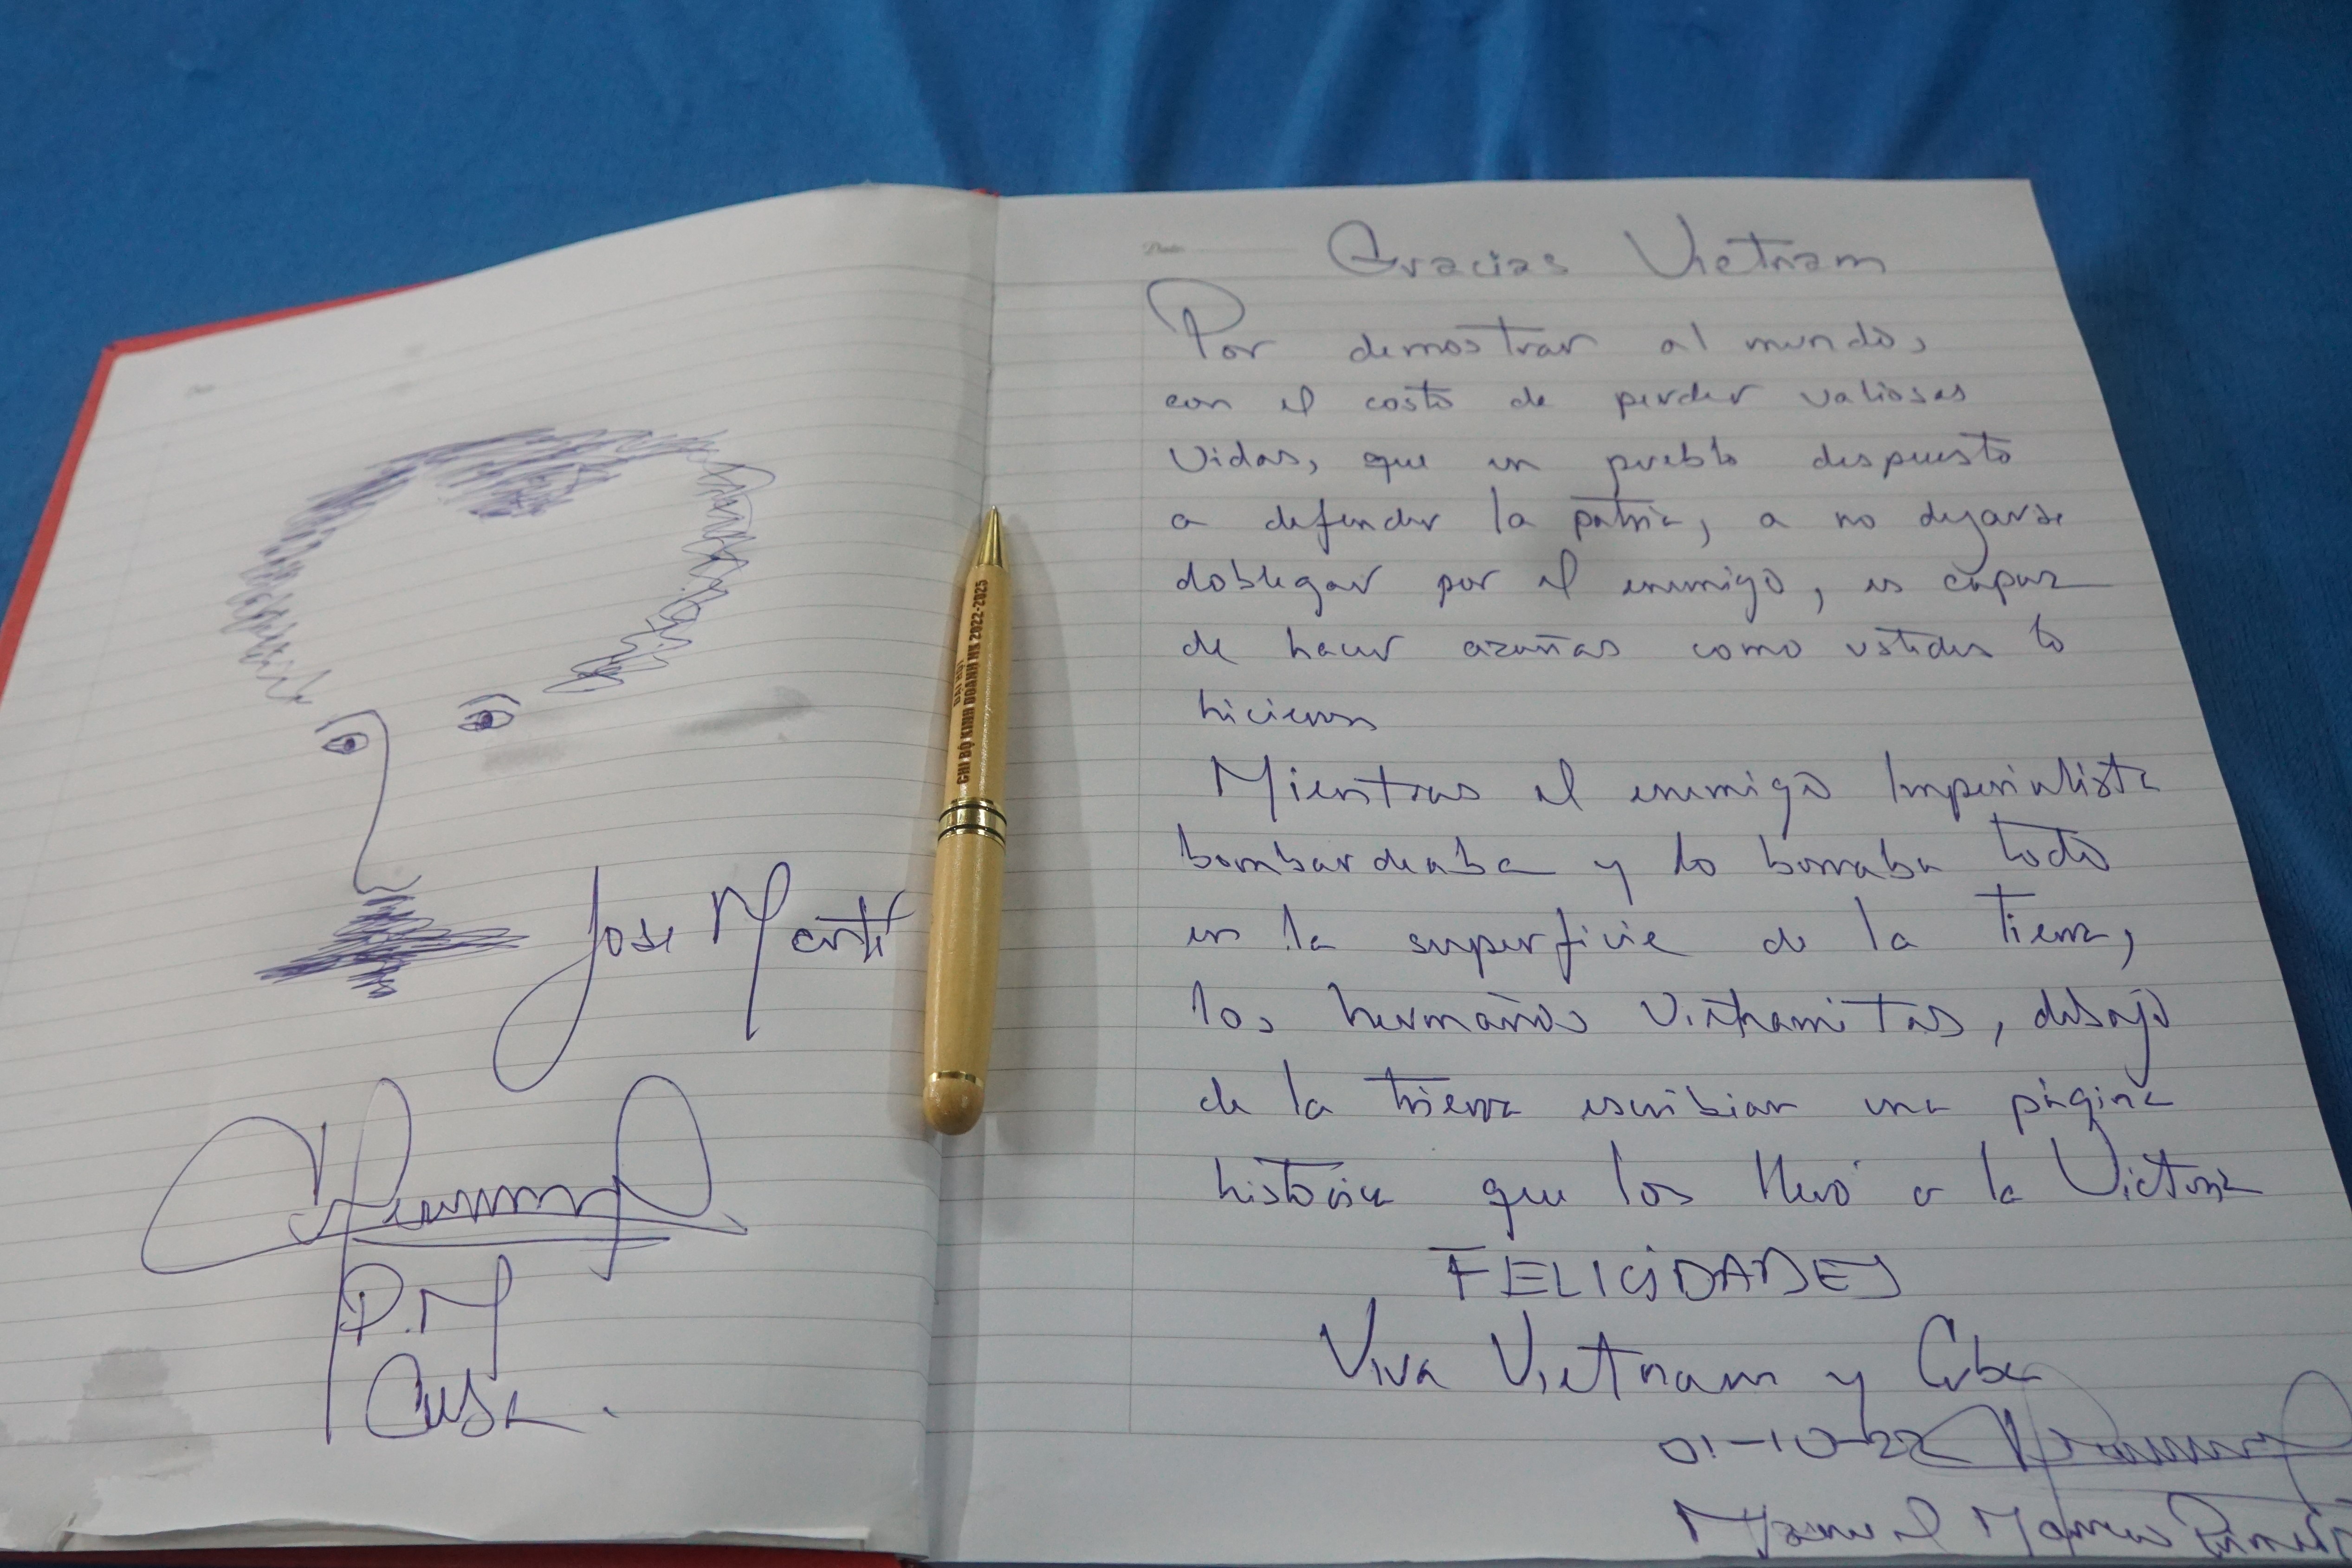 Jose Martí
P.M
Cuba.
ĐẠI HỘI
CHI BỘ KINH DOANH HK 2022-2025
Date
Gracias Vietnam
Por demostrar al mundo,
con el costo de perder valiosas
vidas, que un pueblo dispuesto
a defender la patria, a no dejarse
doblegar por el enemigo, es capaz
de hacer azañas como ustedes lo
hicieron
Mientras el enemigo Imperialista
bombardeaba y lo borraba todo
en la superficie de la tierra,
los hermanos Vietnamitas, debajo
de la tierra escribian una página
historica que los llevó a la Victoria
FELICIDADES
Viva Vietnam y Cuba
01-10-22
Manuel Marrero